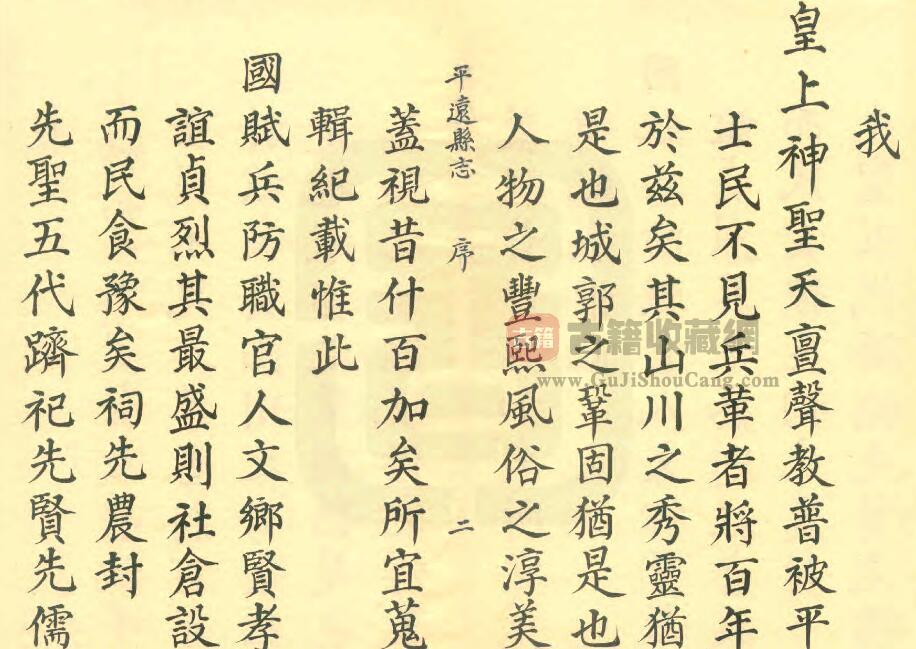 我
皇上神聖天亶聲教普被平
士民不見兵革者將百年
於茲矣其山川之秀靈猶
是也城郭之鞏固猶是也
人物之豐熙風俗之淳美
平遠縣志 序 二
蓋視昔什百加矣所宜蒐
輯紀載惟此
國賦兵防職官人文鄉賢孝
誼貞烈其最盛則社倉設
而民食豫矣祠先農封
先聖五代躋祀先賢先儒
古籍 古籍收藏網
www.GuJiShouCang.com